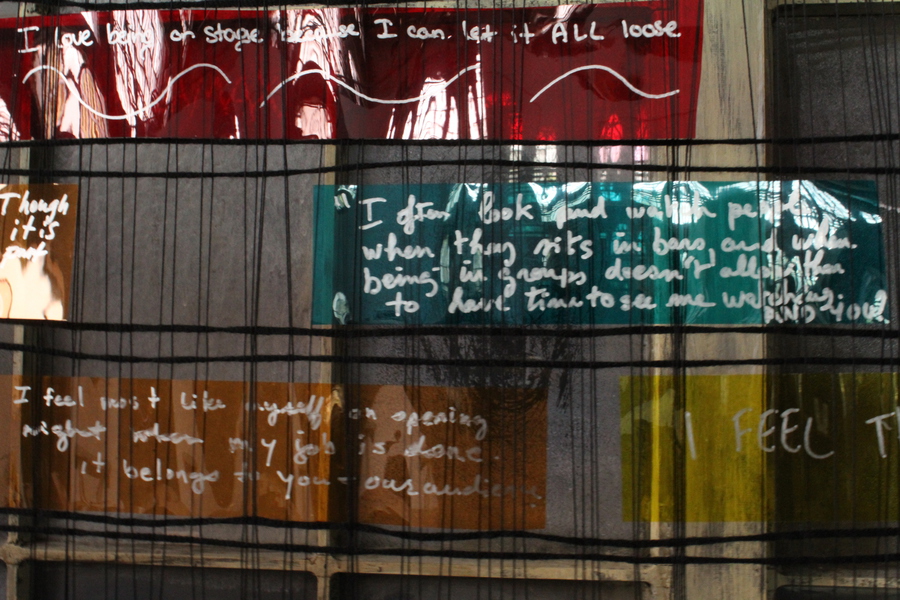 I love being on stage because I can let it ALL loose
Though
it is
I often look and watch people
when they sits in bars and when
being in groups doesn't allow then
to have time to see me watching
AND YOU?
I feel most like myself on opening
night when my job is done.
it belongs to you - our audience
I FEEL